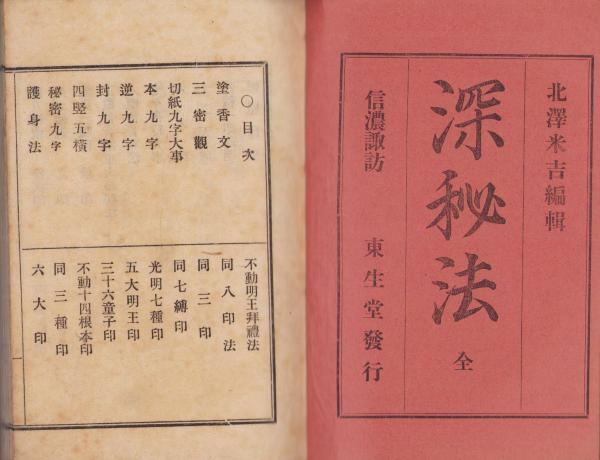 北澤米吉編輯
深秘法
全
信濃諏訪 東生堂發行
〇目次
塗香文
三密觀
切紙九字大事
本九字
逆九字
封九字
四竪五橫
秘密九字
護身法
不動明王拜禮法
同八印法
同三印
同七縛印
光明七種印
五大明王印
三十六童子印
不動十四根本印
同三種印
六大印